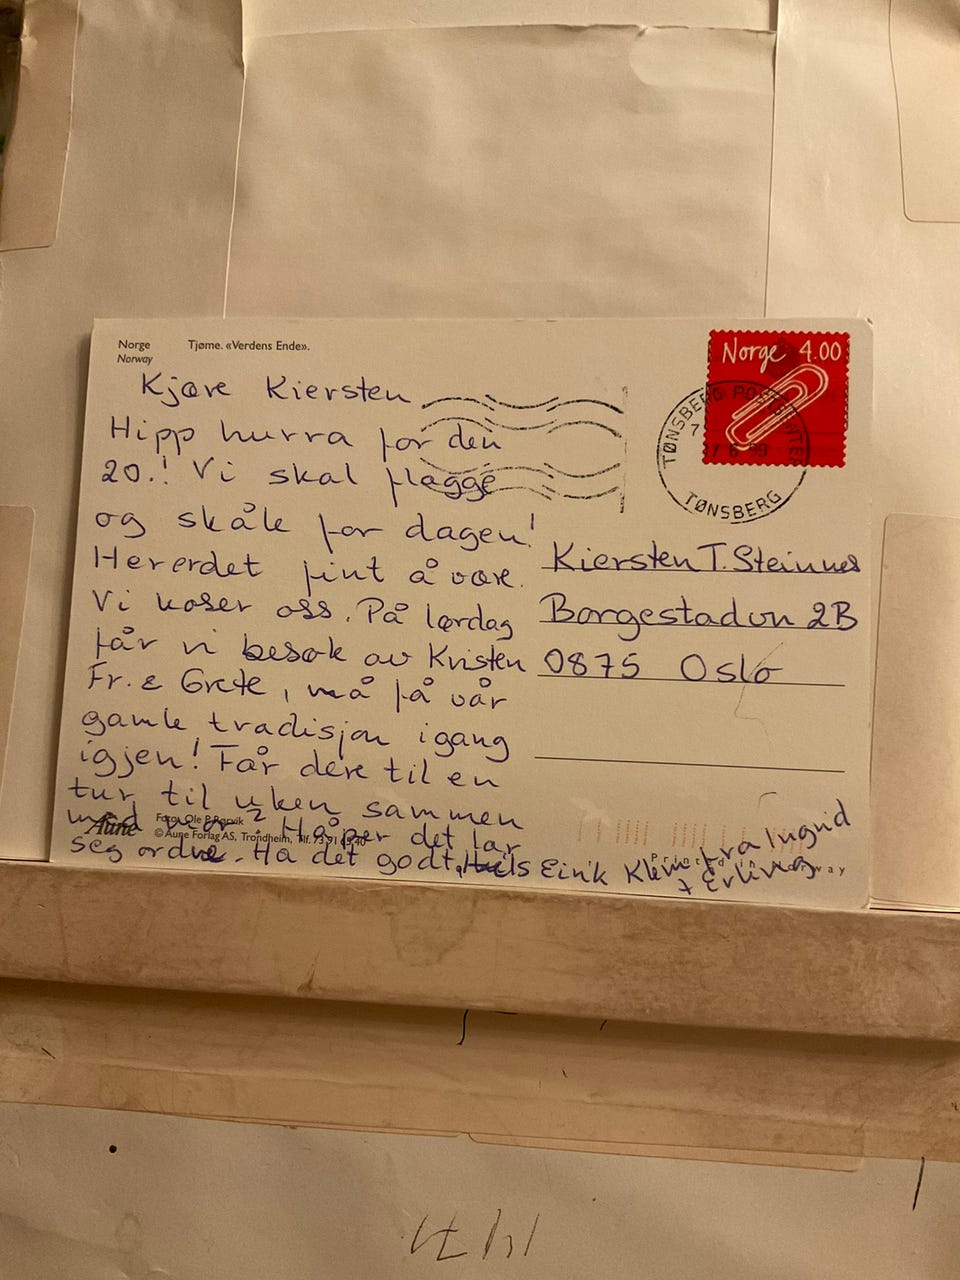 Norge
Norway
Tjøme. «Verdens Ende».
Norge 4.00
TØNSBERG POSTSENTER
7 6 99
TØNSBERG
Kjære Kiersten
Hipp hurra for den
20.! Vi skal flagge
og skåle for dagen!
Her er det fint å være.
Vi koser oss. På lørdag
får vi besøk av Kristen
Fr. & Grete, må få vår
gamle tradisjon igang
igjen! Får dere til en
tur til uken sammen
med mor? Håper det lar
seg ordne. Ha det godt. Hils Eirik
Klem fra Ingrid
+ Erling
Kiersten T. Steinnes
Borgestadvn 2B
0875 Oslo
Aune
Foto: Ole P. Rørvik
© Aune Forlag AS, Trondheim, Tlf. 73 91